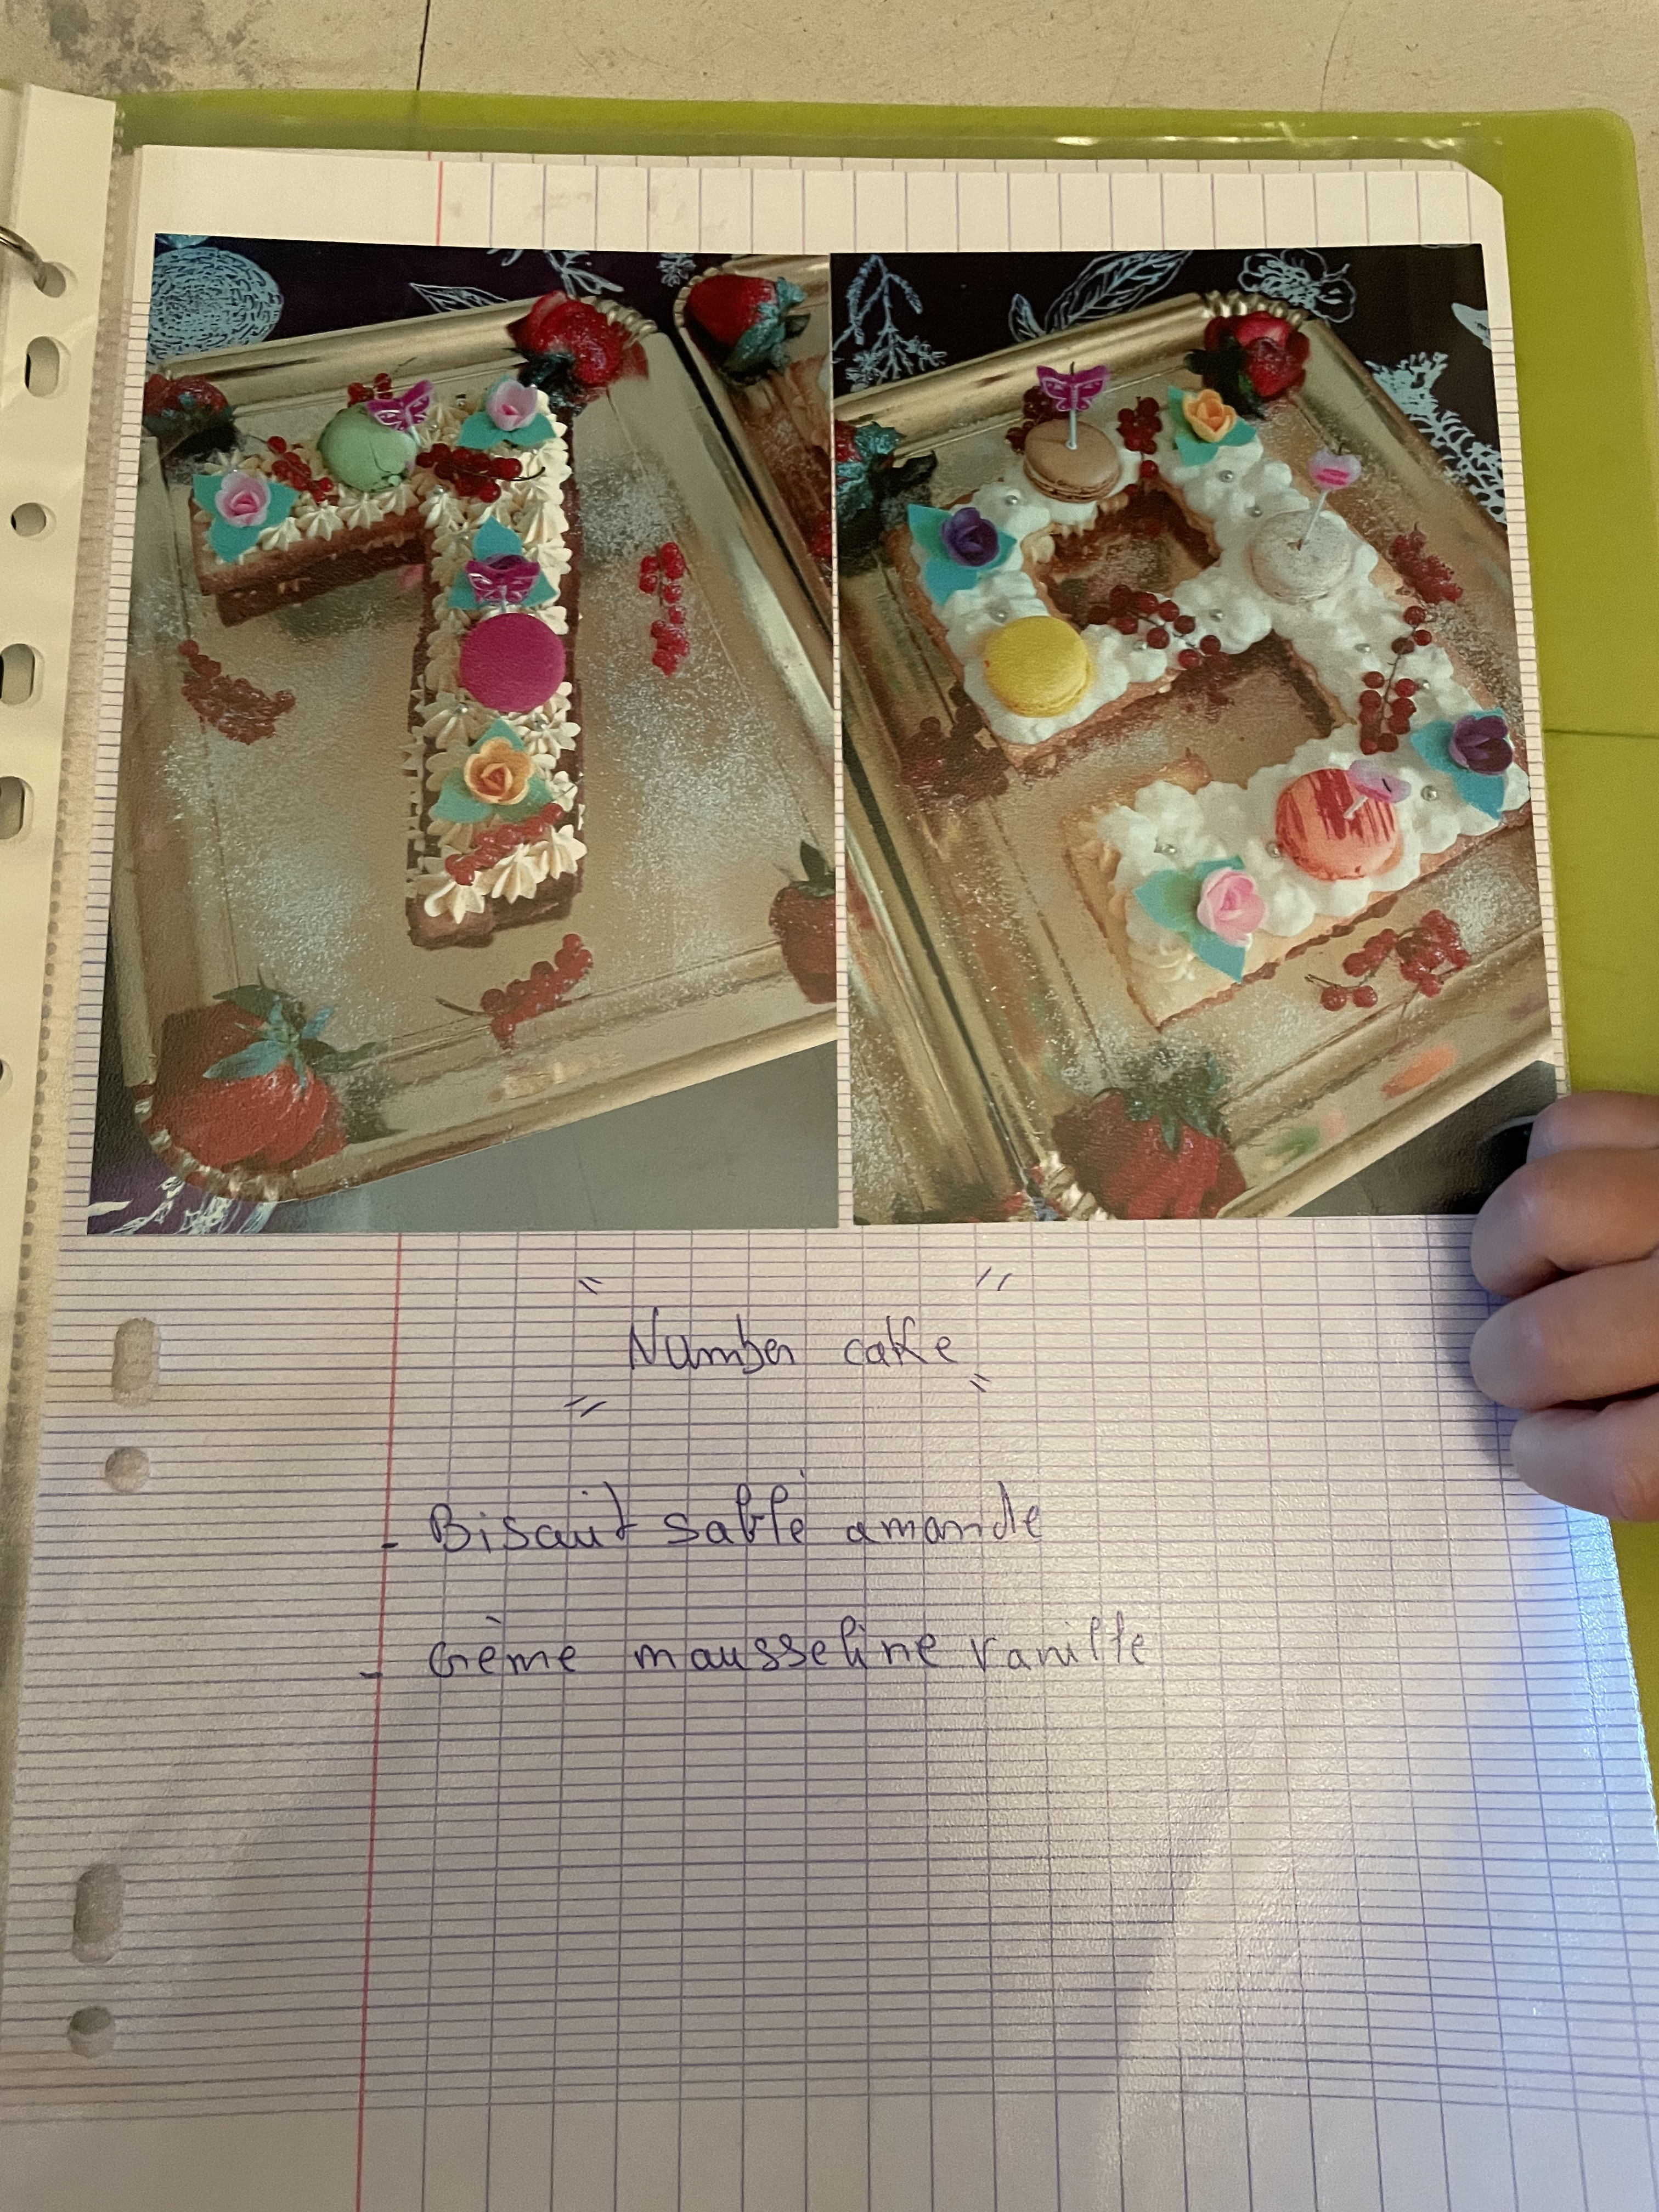 " Number cake "
- Biscuit sablé amande
- Crème mousseline vanille